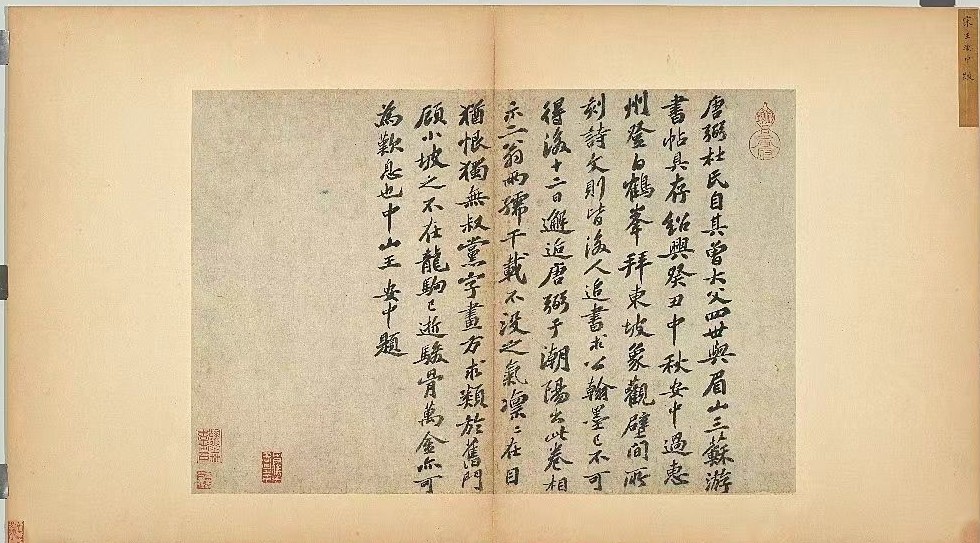 唐弼杜氏自其曾大父四世與眉山三蘇游
書帖具存紹興癸丑中秋安中過惠
州登白鶴峯拜東坡象觀壁間所
刻詩文則皆後人追書求公翰墨已不可
得後十二日邂逅唐弼于潮陽出此卷相
示二翁兩孺千載不沒之氣凜〻在目
猶恨獨無叔黨字畫方求類於舊門
顧小坡之不在龍駒已逝駿骨萬金亦可
為歎息也中山王安中題
宋王安中